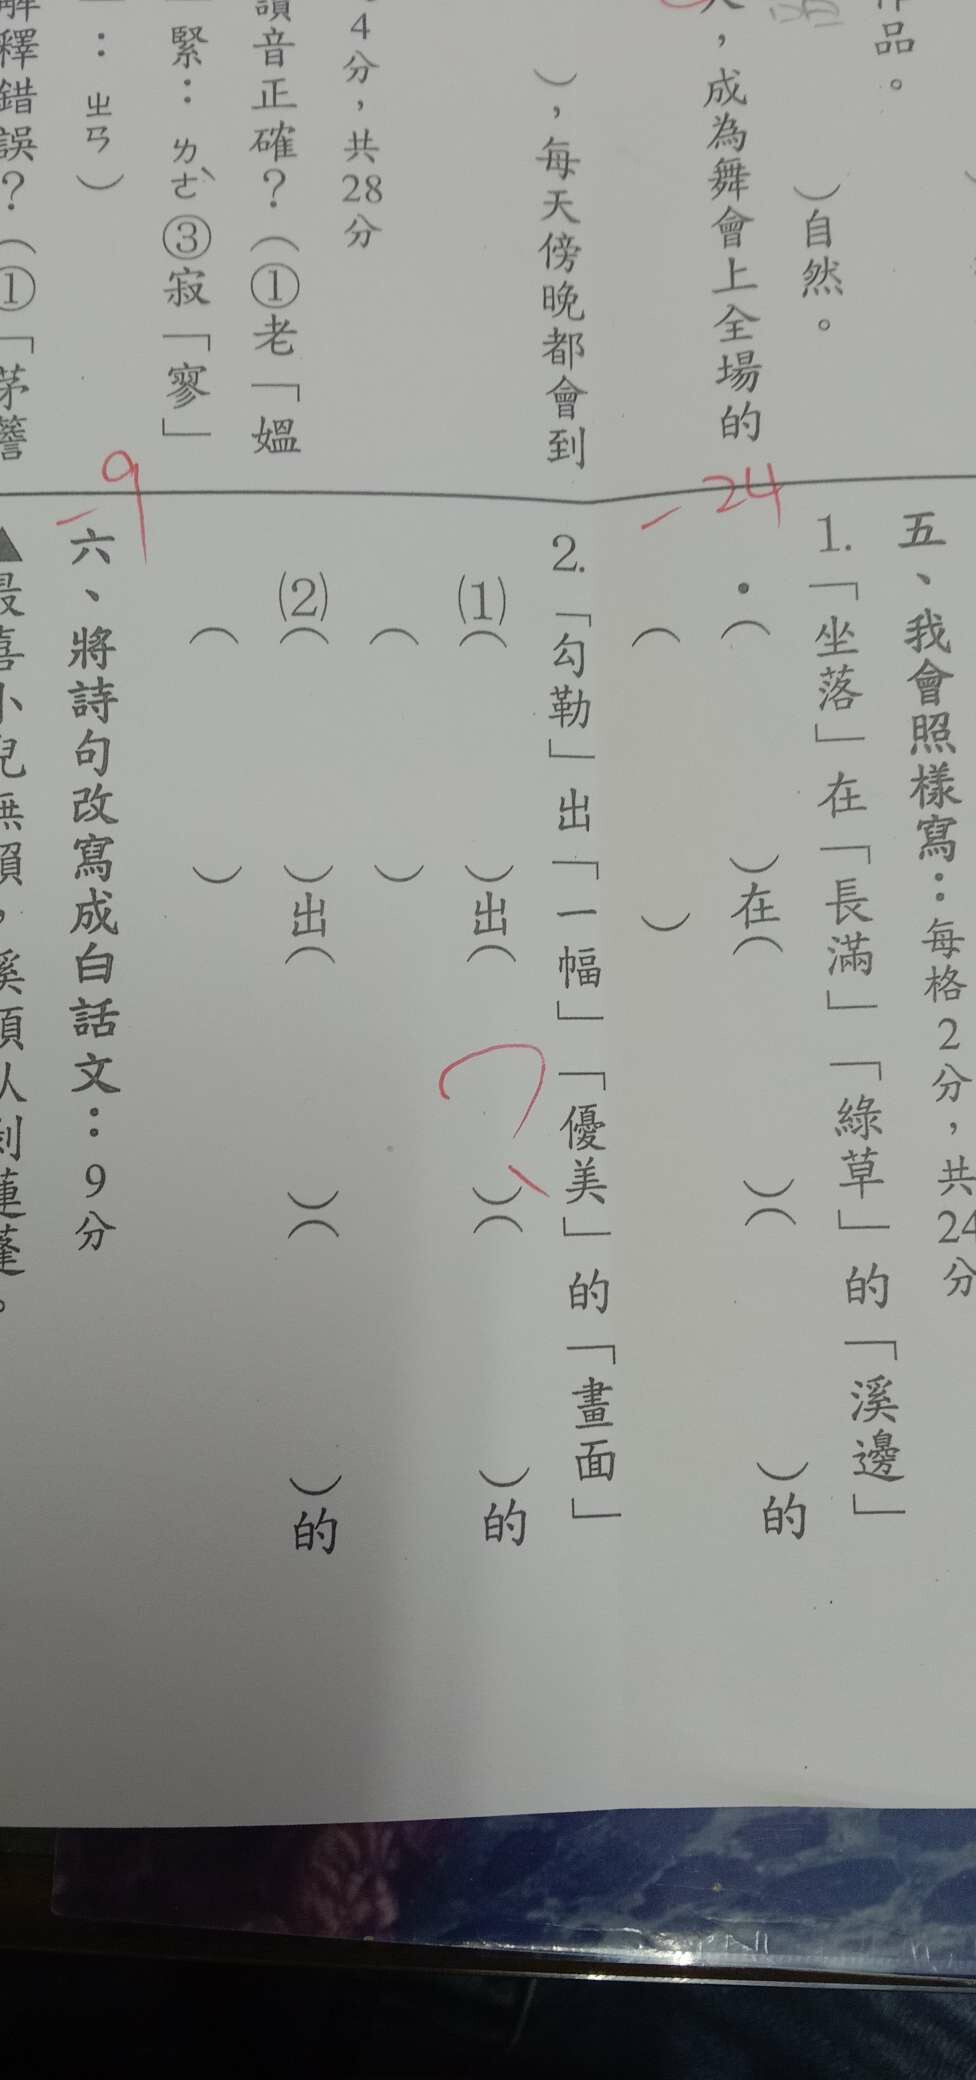 作品。
）自然。
，成為舞會上全場的
），每天傍晚都會到
4分，共28分
讀音正確？（①老「媼
緊：ㄌㄜˋ③寂「寥」
：ㄓㄢ）
解釋錯誤？（①「茅簷
-24
五、我會照樣寫：每格2分，共24分
1.「坐落」在「長滿」「綠草」的「溪邊」
•（　）在（　）（　）的
（　）
2.「勾勒」出「一幅」「優美」的「畫面」
(1)（　）出（　）（　）的
（　）
(2)（　）出（　）（　）的
（　）
-9
六、將詩句改寫成白話文：9分
▲最喜小兒無賴，溪頭臥剝蓮蓬。